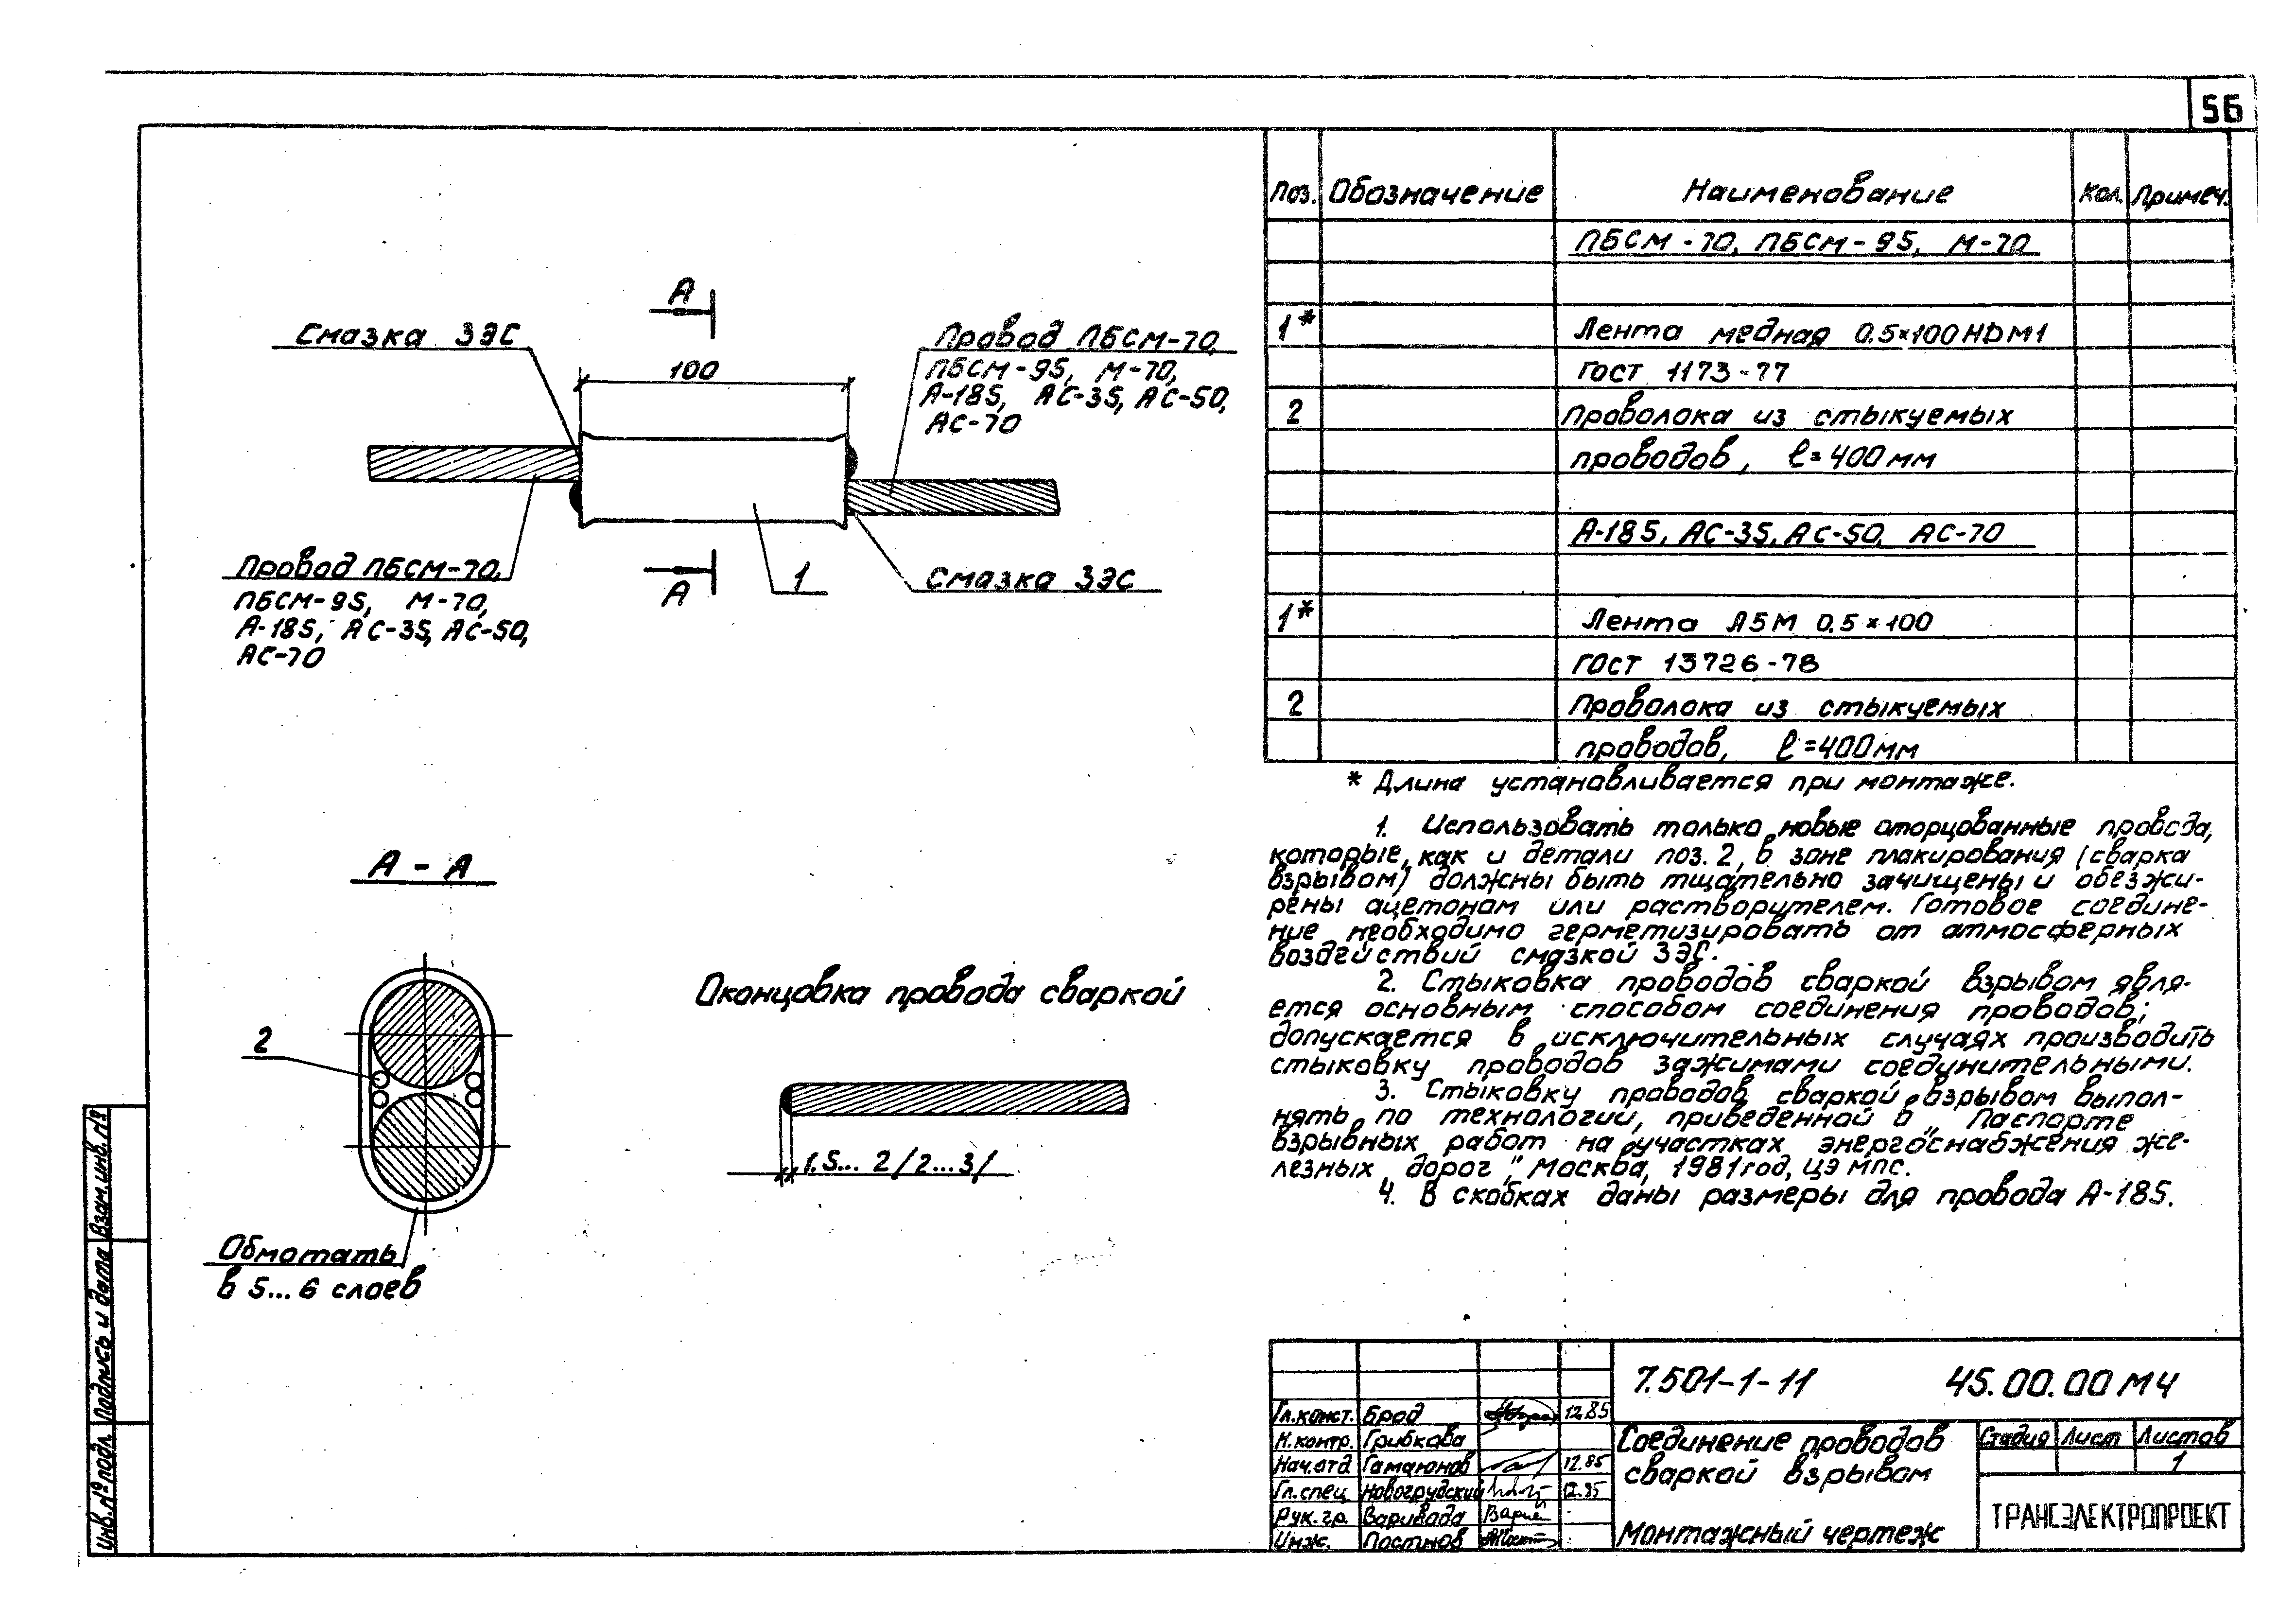 56
Поз. Обозначение Наименование Кол. Примеч.
ПБСМ-70, ПБСМ-95, М-70
1* Лента медная 0.5×100 НД М1
ГОСТ 1173-77
2 Проволока из стыкуемых
проводов, ℓ=400мм
А-185, АС-35, АС-50, АС-70
1* Лента А5М 0.5×100
ГОСТ 13726-78
2 Проволока из стыкуемых
проводов, ℓ=400мм
* Длина устанавливается при монтаже.
1. Использовать только новые оторцованные провода,
которые, как и детали поз. 2, в зоне плакирования (сварка
взрывом) должны быть тщательно зачищены и обезжи-
рены ацетоном или растворителем. Готовое соедине-
ние необходимо герметизировать от атмосферных
воздействий смазкой ЗЭС.
2. Стыковка проводов сваркой взрывом явля-
ется основным способом соединения проводов;
допускается в исключительных случаях производить
стыковку проводов зажимами соединительными.
3. Стыковку проводов сваркой взрывом выпол-
нять по технологии, приведенной в „Паспорте
взрывных работ на участках энергоснабжения же-
лезных дорог", Москва, 1981год, ЦЭ МПС.
4. В скобках даны размеры для провода А-185.
А
Смазка ЗЭС
100
Провод ПБСМ-70,
ПБСМ-95, М-70,
А-185, АС-35, АС-50,
АС-70
Провод ПБСМ-70,
ПБСМ-95, М-70,
А-185, АС-35, АС-50,
АС-70
А
1
Смазка ЗЭС
А - А
2
Обмотать
в 5... 6 слоев
Оконцовка провода сваркой
1.5... 2/2...3/
7.501-1-11 45.00.00 МЧ
Гл.конст. Брод 12.85
Н.контр. Грибкова
Нач.отд Гамаюнов 12.85
Гл.спец Новогрудский 12.85
Рук.гр. Варивода
Инж. Постнов
Соединение проводов
сваркой взрывом
Монтажный чертеж
Стадия Лист Листов
1
ТРАНСЭЛЕКТРОПРОЕКТ
Взам.инв.№
Подпись и дата
Инв.№подл.